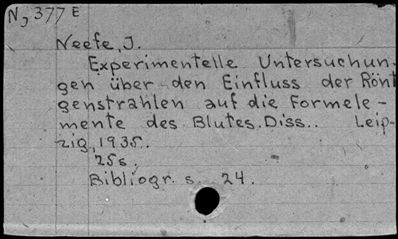 N, 377 E
Neefe, J.
Experimentelle Untersuchun-
gen über den Einfluss der Rönt
genstrahlen auf die Formele-
mente des Blutes. Diss.. Leip-
zig, 1935.
25s.
Bibliogr. s. 24.